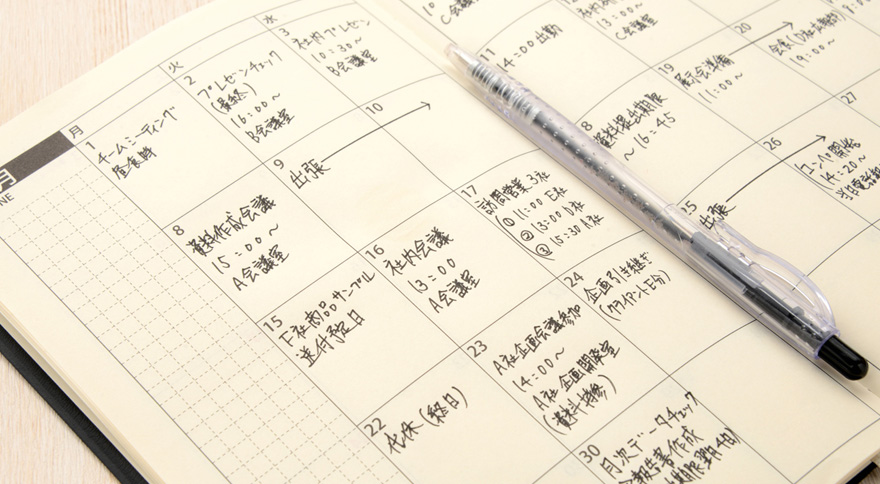 月
火
水
1
チームミーティング
昼食時
2
プレゼンチェック
(最終)
16:00～
B会議室
3
社内プレゼン
10:30～
B会議室
C会議室
8
資料作成会議
15:00～
A会議室
9
出張
10
11
14:00出勤
13:00～
C会議室
15
F社商品サンプル
送付予定日
16
社内会議
13:00
A会議室
17
訪問営業3社
①11:00 E社
②13:00 D社
③15:30 A社
8
資料提出期限
～16:45
19
展示会準備
11:00～
20
19:00～
22
代休(終日)
23
A社企画会議参加
14:00～
A社企画開発室
(資料持参)
24
企画引き継ぎ
(クライアントE分)
25
出張
26
コンペ開始
14:20～
27
30
月次データチェック
報告書作成